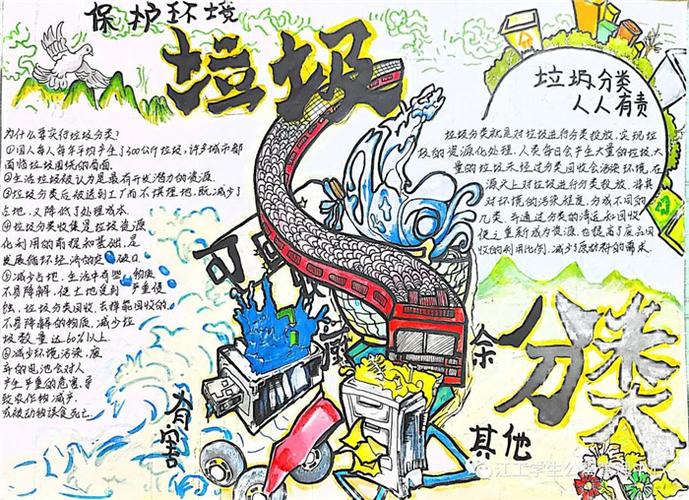 保护环境
垃圾
为什么要实行垃圾分类?
①国人每人每年平均产生了300公斤垃圾,许多城市都
面临垃圾围城的局面.
②生活垃圾被认为是最有开发潜力的资源.
③垃圾分类后被送到工厂而不填埋地,既减少了
占地,又降低了处理成本.
④垃圾分类收集是垃圾资源
化利用的前提和基础,是
发展循环经济的
⑤减少占地.生活中有些 物质
不易降解,使土地受到严重侵
蚀,垃圾分类回收.去掉能回收的.
不易降解的物质,减少垃
圾数量达60%以上.
⑥减少环境污染.废
弃的电池会对人
产生严重的危害.导
致农作物减产.
或被动物误食死亡.
垃圾分类
人人有责
垃圾分类就是对垃圾进行分类投放,实现垃
圾的资源化处理.人类每日会产生大量的垃圾,大
量的垃圾未经过分类回收会污染环境.在
源头上对垃圾进行分类投放.将其
对环境的污染程度,分成不同的
几类.并通过分类的清运和回收
使之重新成为资源.也提高了废品回
收的利用比例.减少了原材料的需求
可
有害
余
其他
分类
江工学生公寓